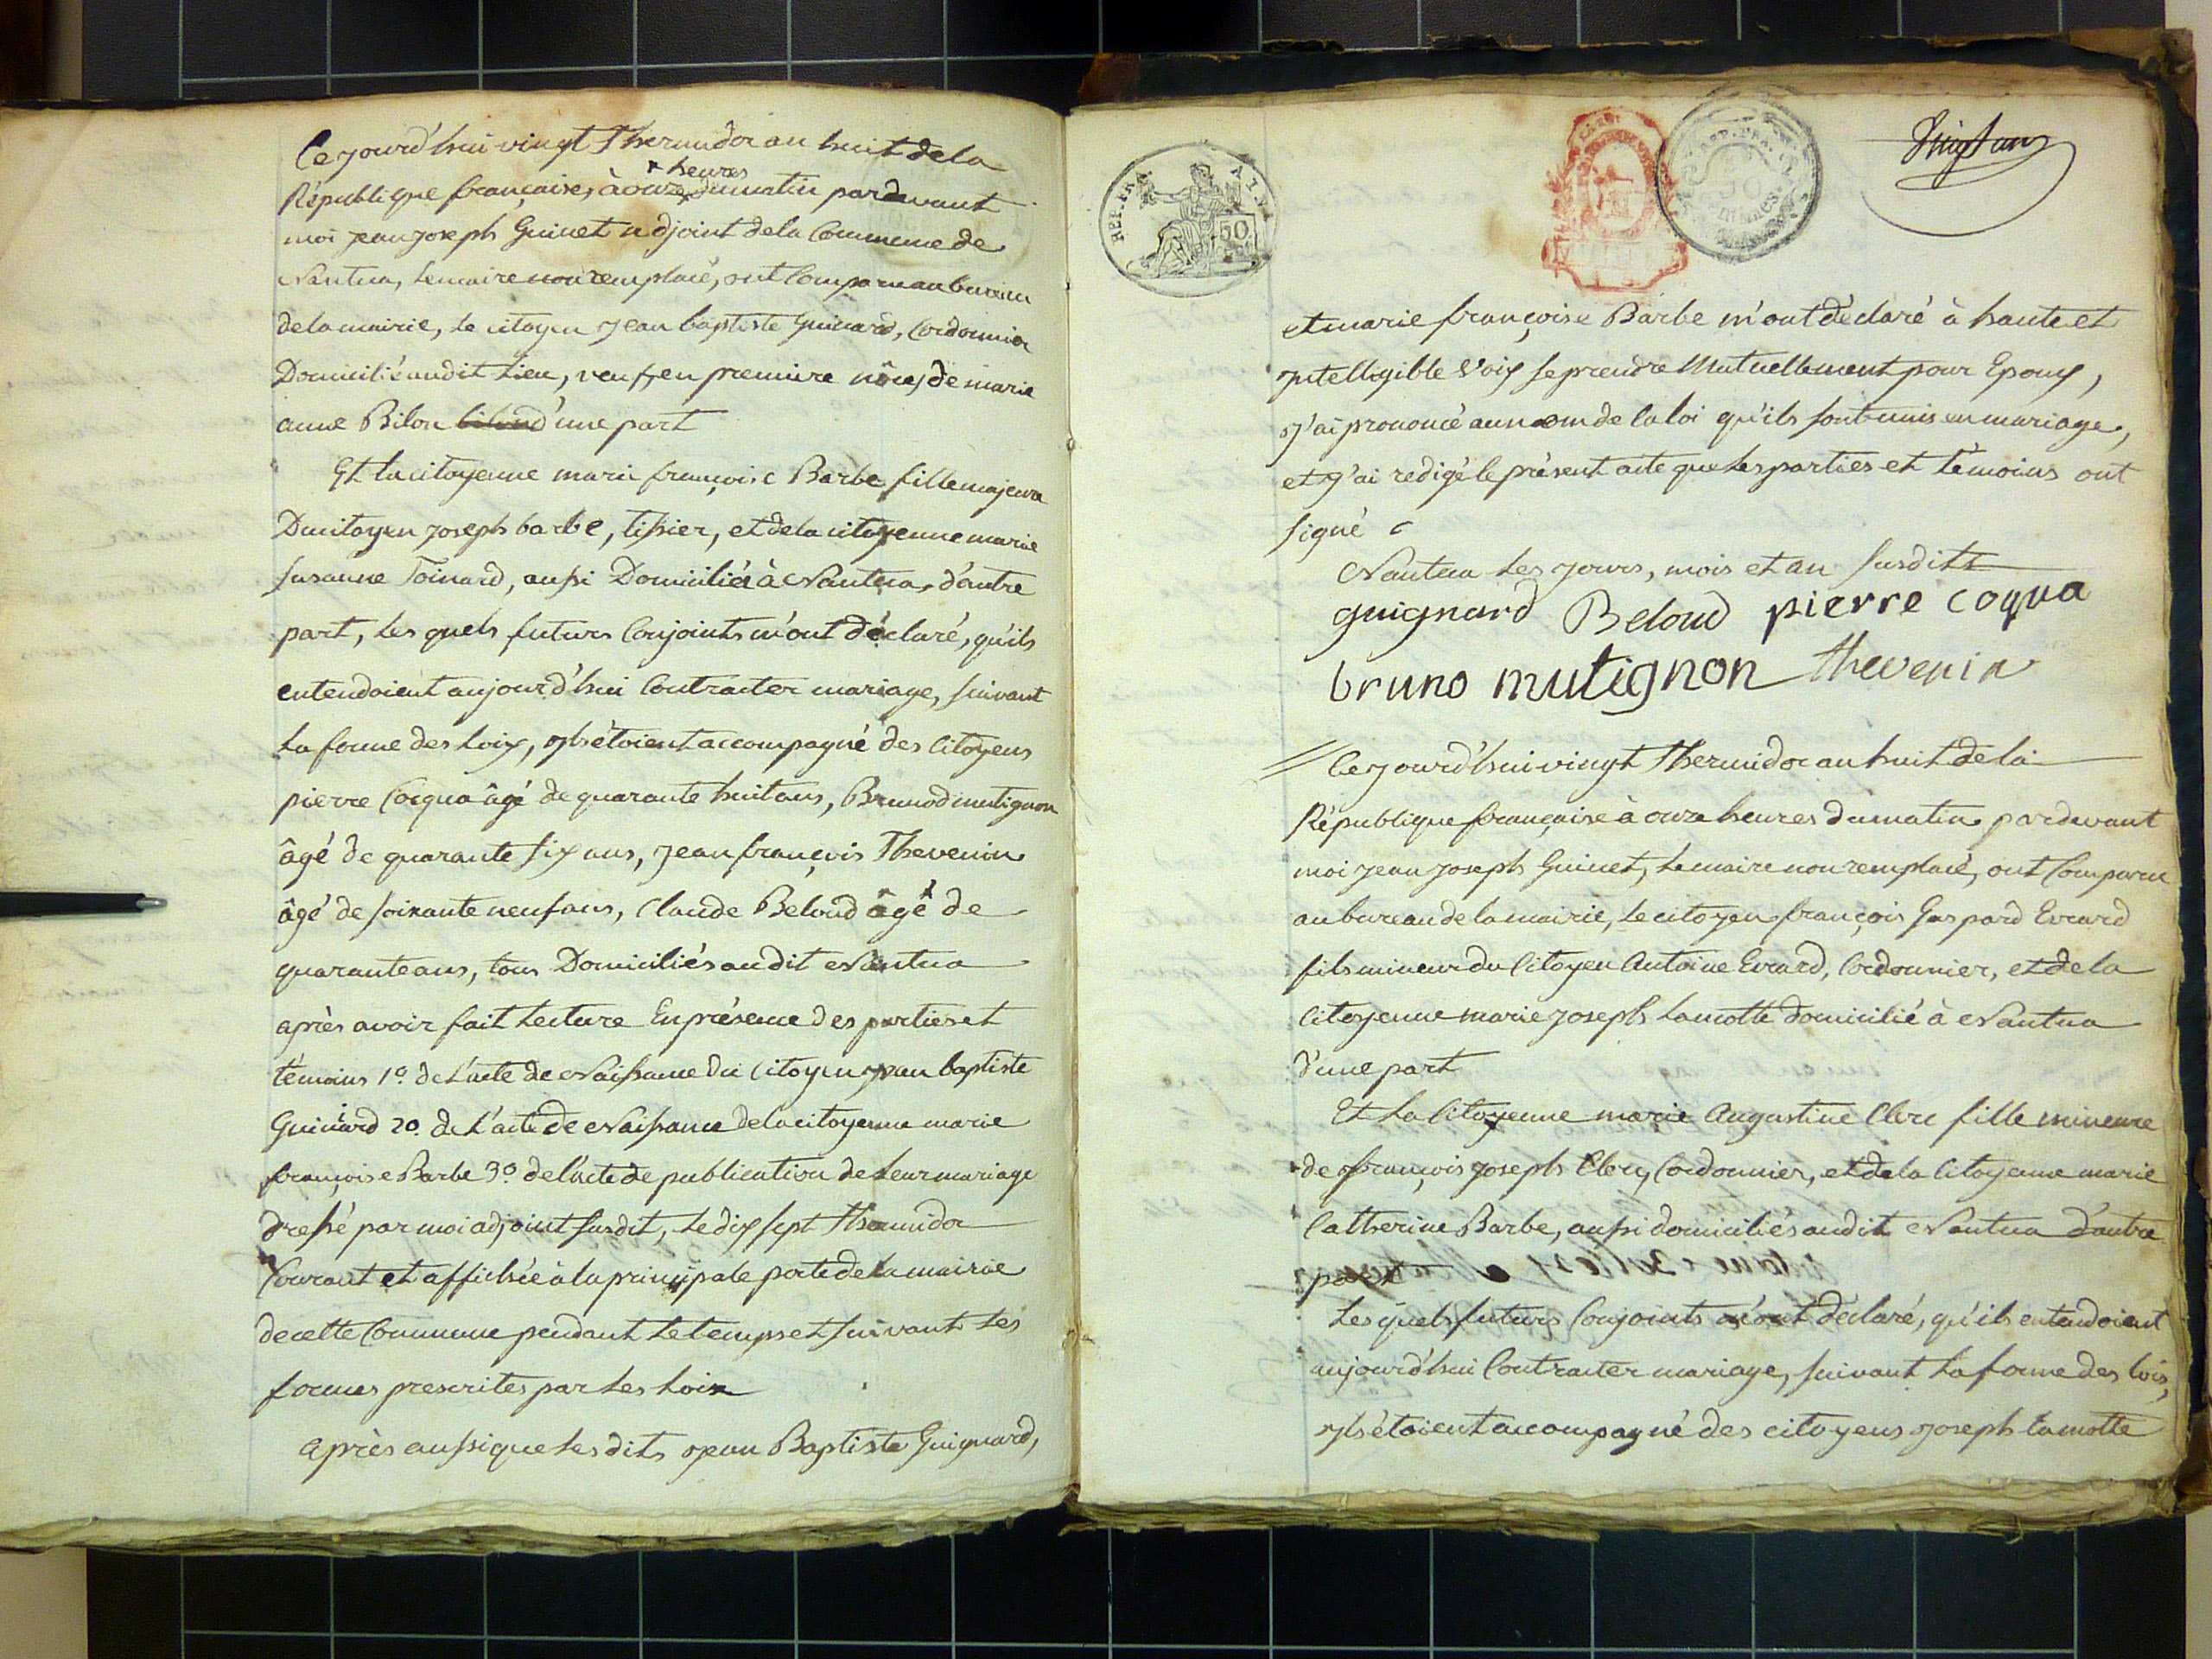 Ce jourd'hui vingt Thermidor an huit de la
heures
République française, à onze du matin pardevant
moi jean joseph Guinet adjoint de la Commune de
Nantua, le maire non remplacé, ont Comparu au bureau
de la mairie, le citoyen jean baptiste Guinard, Cordonnier
Domicilié audit Lieu, veuf en premiere nôces de marie
anne Bilon d'une part
Et la citoyenne marie françoise Barbe fille majeure
Du citoyen joseph barbe, tissier, et de la citoyenne marie
susanne Toinard, aussi Domiciliés à Nantua, d'autre
part, les quels futurs Conjoints m'ont déclaré, qu'ils
entendoient aujourd'hui Contracter mariage, suivant
la forme des loix, ils étoient accompagné des Citoyens
pierre Cocqua âgé de quarante huit ans, Bruno mutignon
âgé de quarante six ans, jean françois Thevenin
âgé de soixante neuf ans, Claude Beloud âgé de
quarante ans, tous Domiciliés audit Nantua
après avoir fait lecture En présence des parties et
témoins 1º. de l'acte de Naissance du Citoyen jean baptiste
Guinard 2º. de l'acte de Naissance de la citoyenne marie
françoise Barbe 3º. de l'acte de publication de leur mariage
dressé par moi adjoint susdit, le dix sept thermidor
Courant et affichée à la principale porte de la mairie
de cette Commune pendant le temps et suivant les
formes prescrites par les loix
après aussi que les dits jean Baptiste Guignard,
REP. FRA.
50
et marie françoise Barbe m'ont déclaré à haute et
intelligible Voix se prendre Mutuellement pour Epoux,
j'ai prononcé au nom de la loi qu'ils sont unis en mariage,
et j'ai redigé le présent acte que les parties et témoins ont
signé
Nantua les jours, mois et an susdits
guignard Beloud pierre coqua
bruno mutignon thevenin
Ce jourd'hui vingt Thermidor an huit de la
République française à onze heures du matin pardevant
moi jean joseph Guinet, le maire non remplacé, ont Comparu
au bureau de la mairie, le citoyen françois Gaspard Evrard
fils mineur du Citoyen Antoine Evrard, Cordonnier, et de la
Citoyenne marie joseph Lamotte domicilié à Nantua
d'une part
Et La Citoyenne marie Augustine Clerc fille mineure
de françois joseph Clerc, Cordonnier, et de la Citoyenne marie
Catherine Barbe, aussi domiciliés audit Nantua d'autre
part
Les quels futurs Conjoints m'ont déclaré, qu'ils entendoient
aujourd'hui Contracter mariage, suivant la forme des lois,
ils étoient accompagné des citoyens joseph lamotte